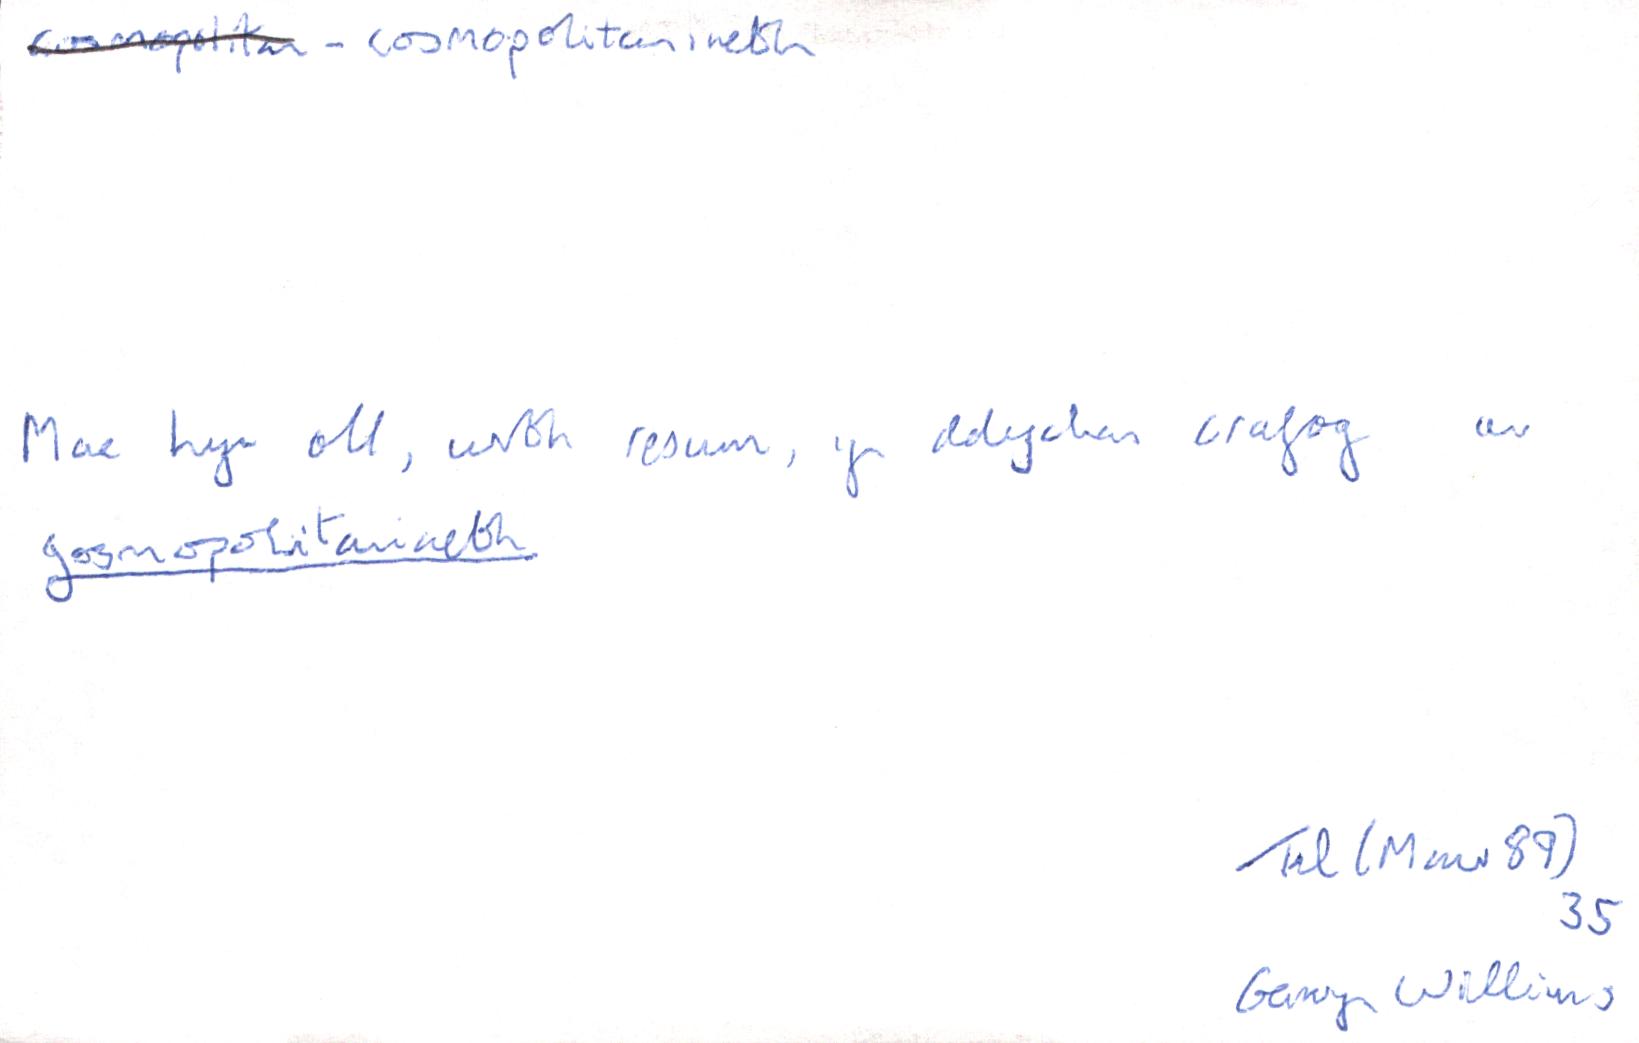 cosmopolitan - cosmopolitaninebth
Mae hyn oll, wrth reswm, yn ddychan crafog ar
gosmopolitaninebth
Tal (Maw 89)
35
Gerwyn Williams